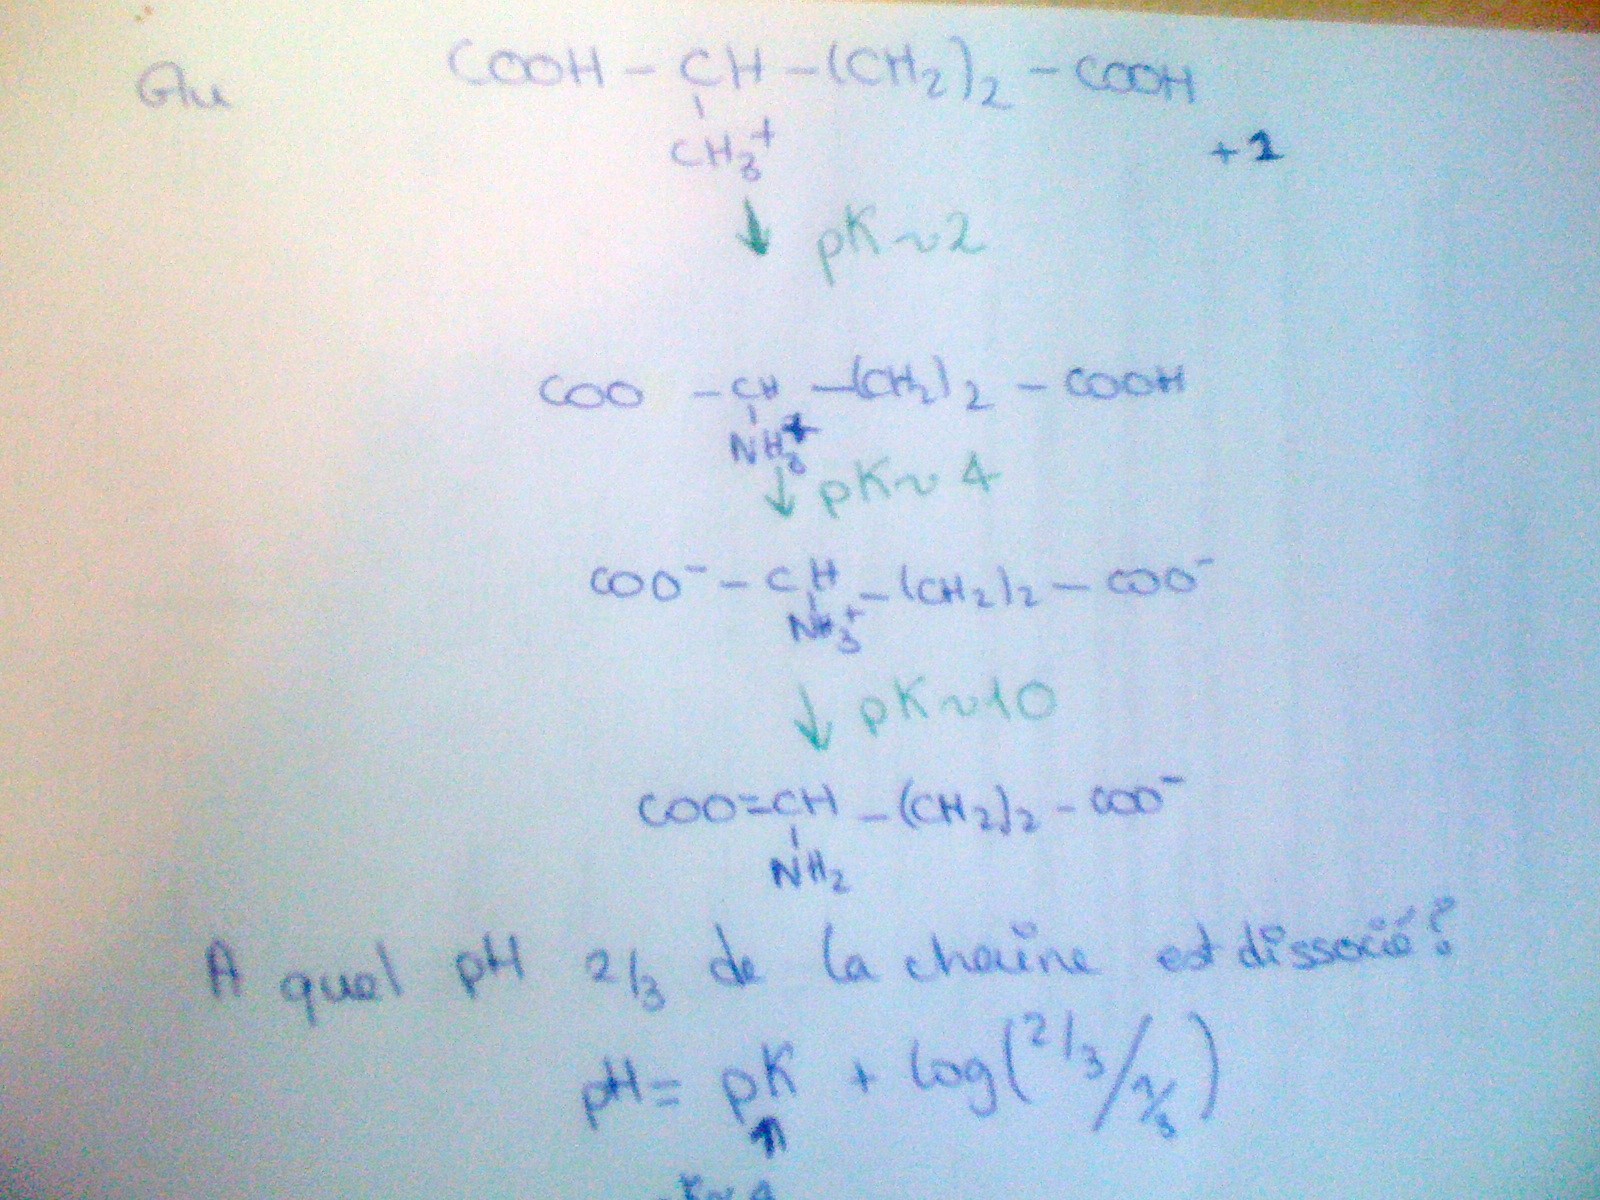 Glu COOH - CH - (CH2)2 - COOH
CH3+
+1
↓ pK ~ 2
COO - CH - (CH2)2 - COOH
NH3+
↓ pK ~ 4
COO- - CH - (CH2)2 - COO-
NH3+
↓ pK ~ 10
COO- - CH - (CH2)2 - COO-
NH2
A quel pH 2/3 de la chaîne est dissocié?
pH = pK + log(2/3/1/3)
↑